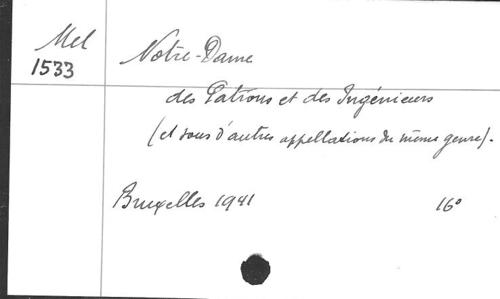 Mel
1533
Notre-Dame
des Patrons et des Ingénieurs
(et sous d'autres appellations du même genre).
Bruxelles 1941
16°